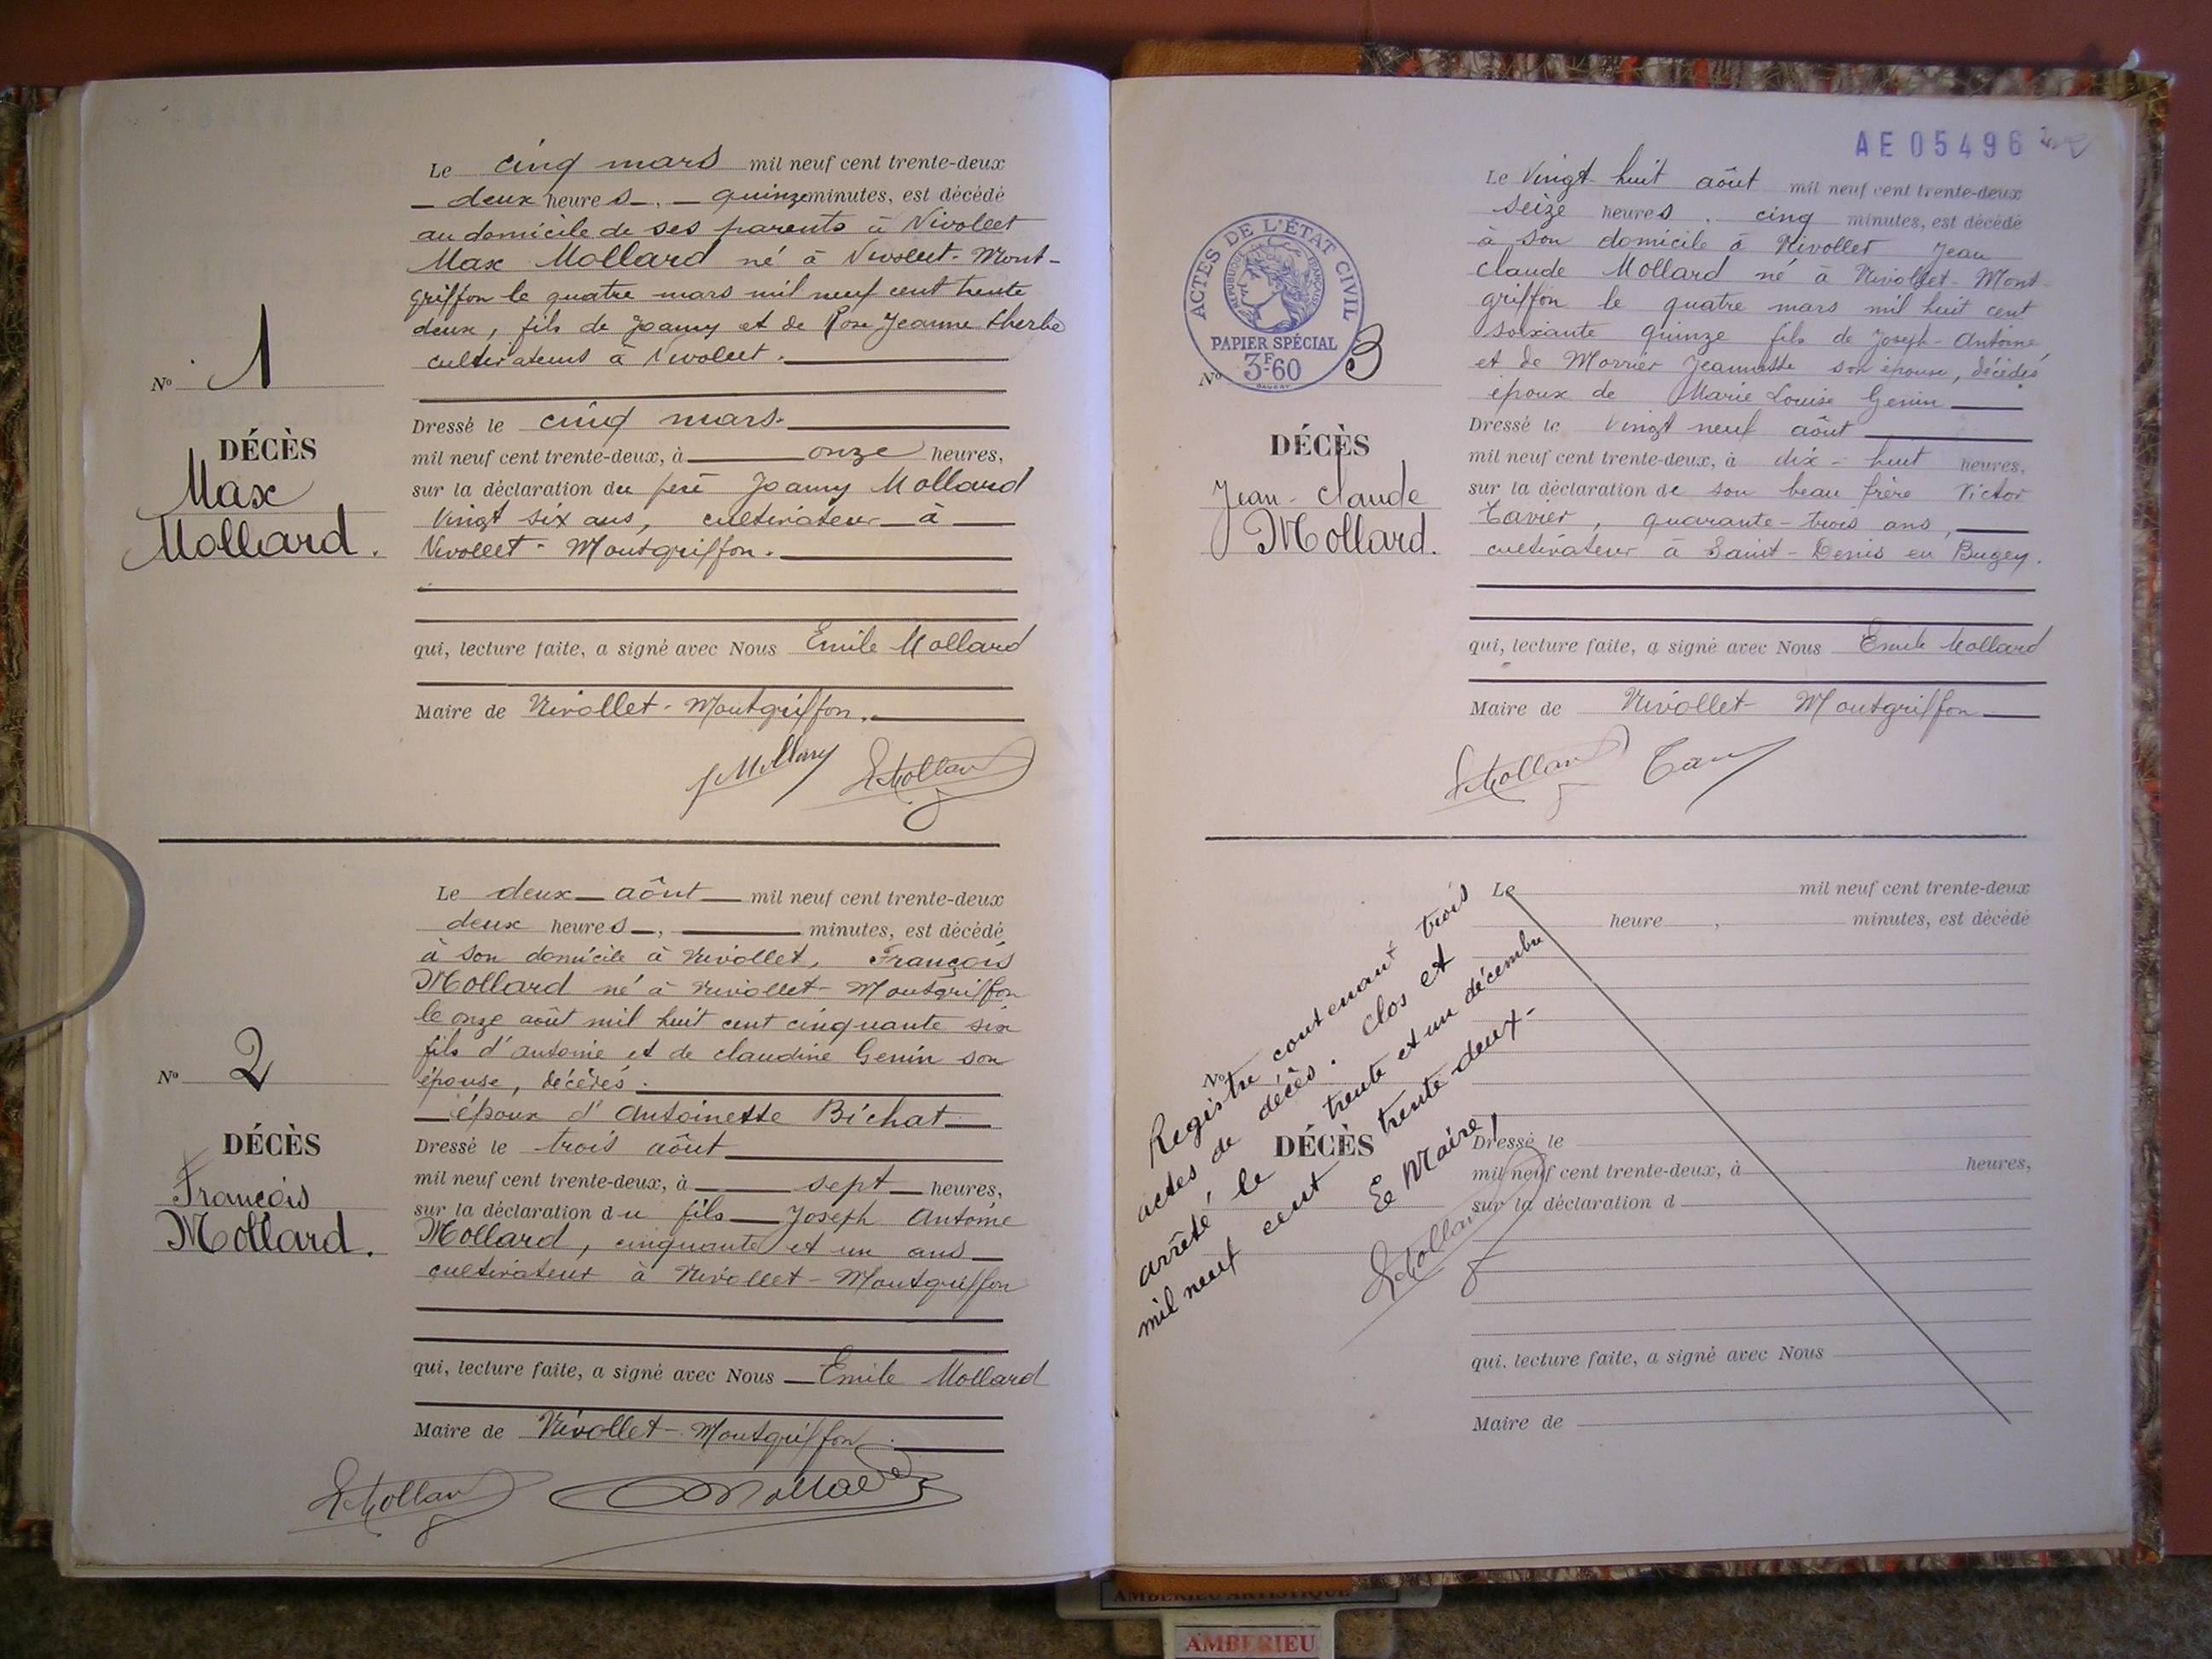 Le cinq mars mil neuf cent trente-deux
deux heures, quinze minutes, est décédé
au domicile de ses parents à Nivollet
Max Mollard né à Nivollet-Mont-
griffon le quatre mars mil neuf cent trente
deux, fils de Joamy et de Rose Jeanne
cultivateurs à Nivollet.
No 1
DÉCÈS
Max
Mollard.
Dressé le cinq mars.
mil neuf cent trente-deux, à onze heures,
sur la déclaration du père Joamy Mollard
Vingt six ans, cultivateur à
Nivollet-Montgriffon.
qui, lecture faite, a signé avec Nous Emile Mollard
Maire de Nivollet-Montgriffon.
Le deux août mil neuf cent trente-deux
deux heures, minutes, est décédé
à son domicile à Nivollet, François
Mollard né à Nivollet-Montgriffon
le onze août mil huit cent cinquante six
fils d'antoine et de claudine Genin son
épouse, décédés.
époux d'Antoinette Bichat
No 2
DÉCÈS
François
Mollard.
Dressé le trois août
mil neuf cent trente-deux, à sept heures,
sur la déclaration du fils Joseph Antoine
Mollard, cinquante et un ans
cultivateur à Nivollet-Montgriffon
qui, lecture faite, a signé avec Nous Emile Mollard
Maire de Nivollet-Montgriffon.
EMollard Mollard
AE05496
ACTES DE L'ÉTAT CIVIL
RÉPUBLIQUE FRANÇAISE
PAPIER SPÉCIAL
3F60
Le Vingt-huit août mil neuf cent trente-deux
seize heures, cinq minutes, est décédé
à son domicile à Nivollet Jean
claude Mollard né à Nivollet-Mont
griffon le quatre mars mil huit cent
soixante quinze fils de Joseph-Antoine
et de Morrier Jeannette son épouse, décédés
époux de Marie Louise Genin
No 3
DÉCÈS
Jean-claude
Mollard.
Dressé le vingt neuf août
mil neuf cent trente-deux, à dix-huit heures,
sur la déclaration de son beau frère Victor
Tavier, quarante-trois ans,
cultivateur à Saint-Denis en Bugey.
qui, lecture faite, a signé avec Nous Emile Mollard
Maire de Nivollet Montgriffon
EMollard
Le mil neuf cent trente-deux
heure, minutes, est décédé
No
DÉCÈS
Dressé le
mil neuf cent trente-deux, à heures,
sur la déclaration d
qui, lecture faite, a signé avec Nous
Maire de
Registre contenant trois
actes de décès. Clos et
arrêté le trente et un décembre
mil neuf cent trente-deux-
Le Maire,
EMollard
AMBERIEU ARTISTIQUE
AMBERIEU